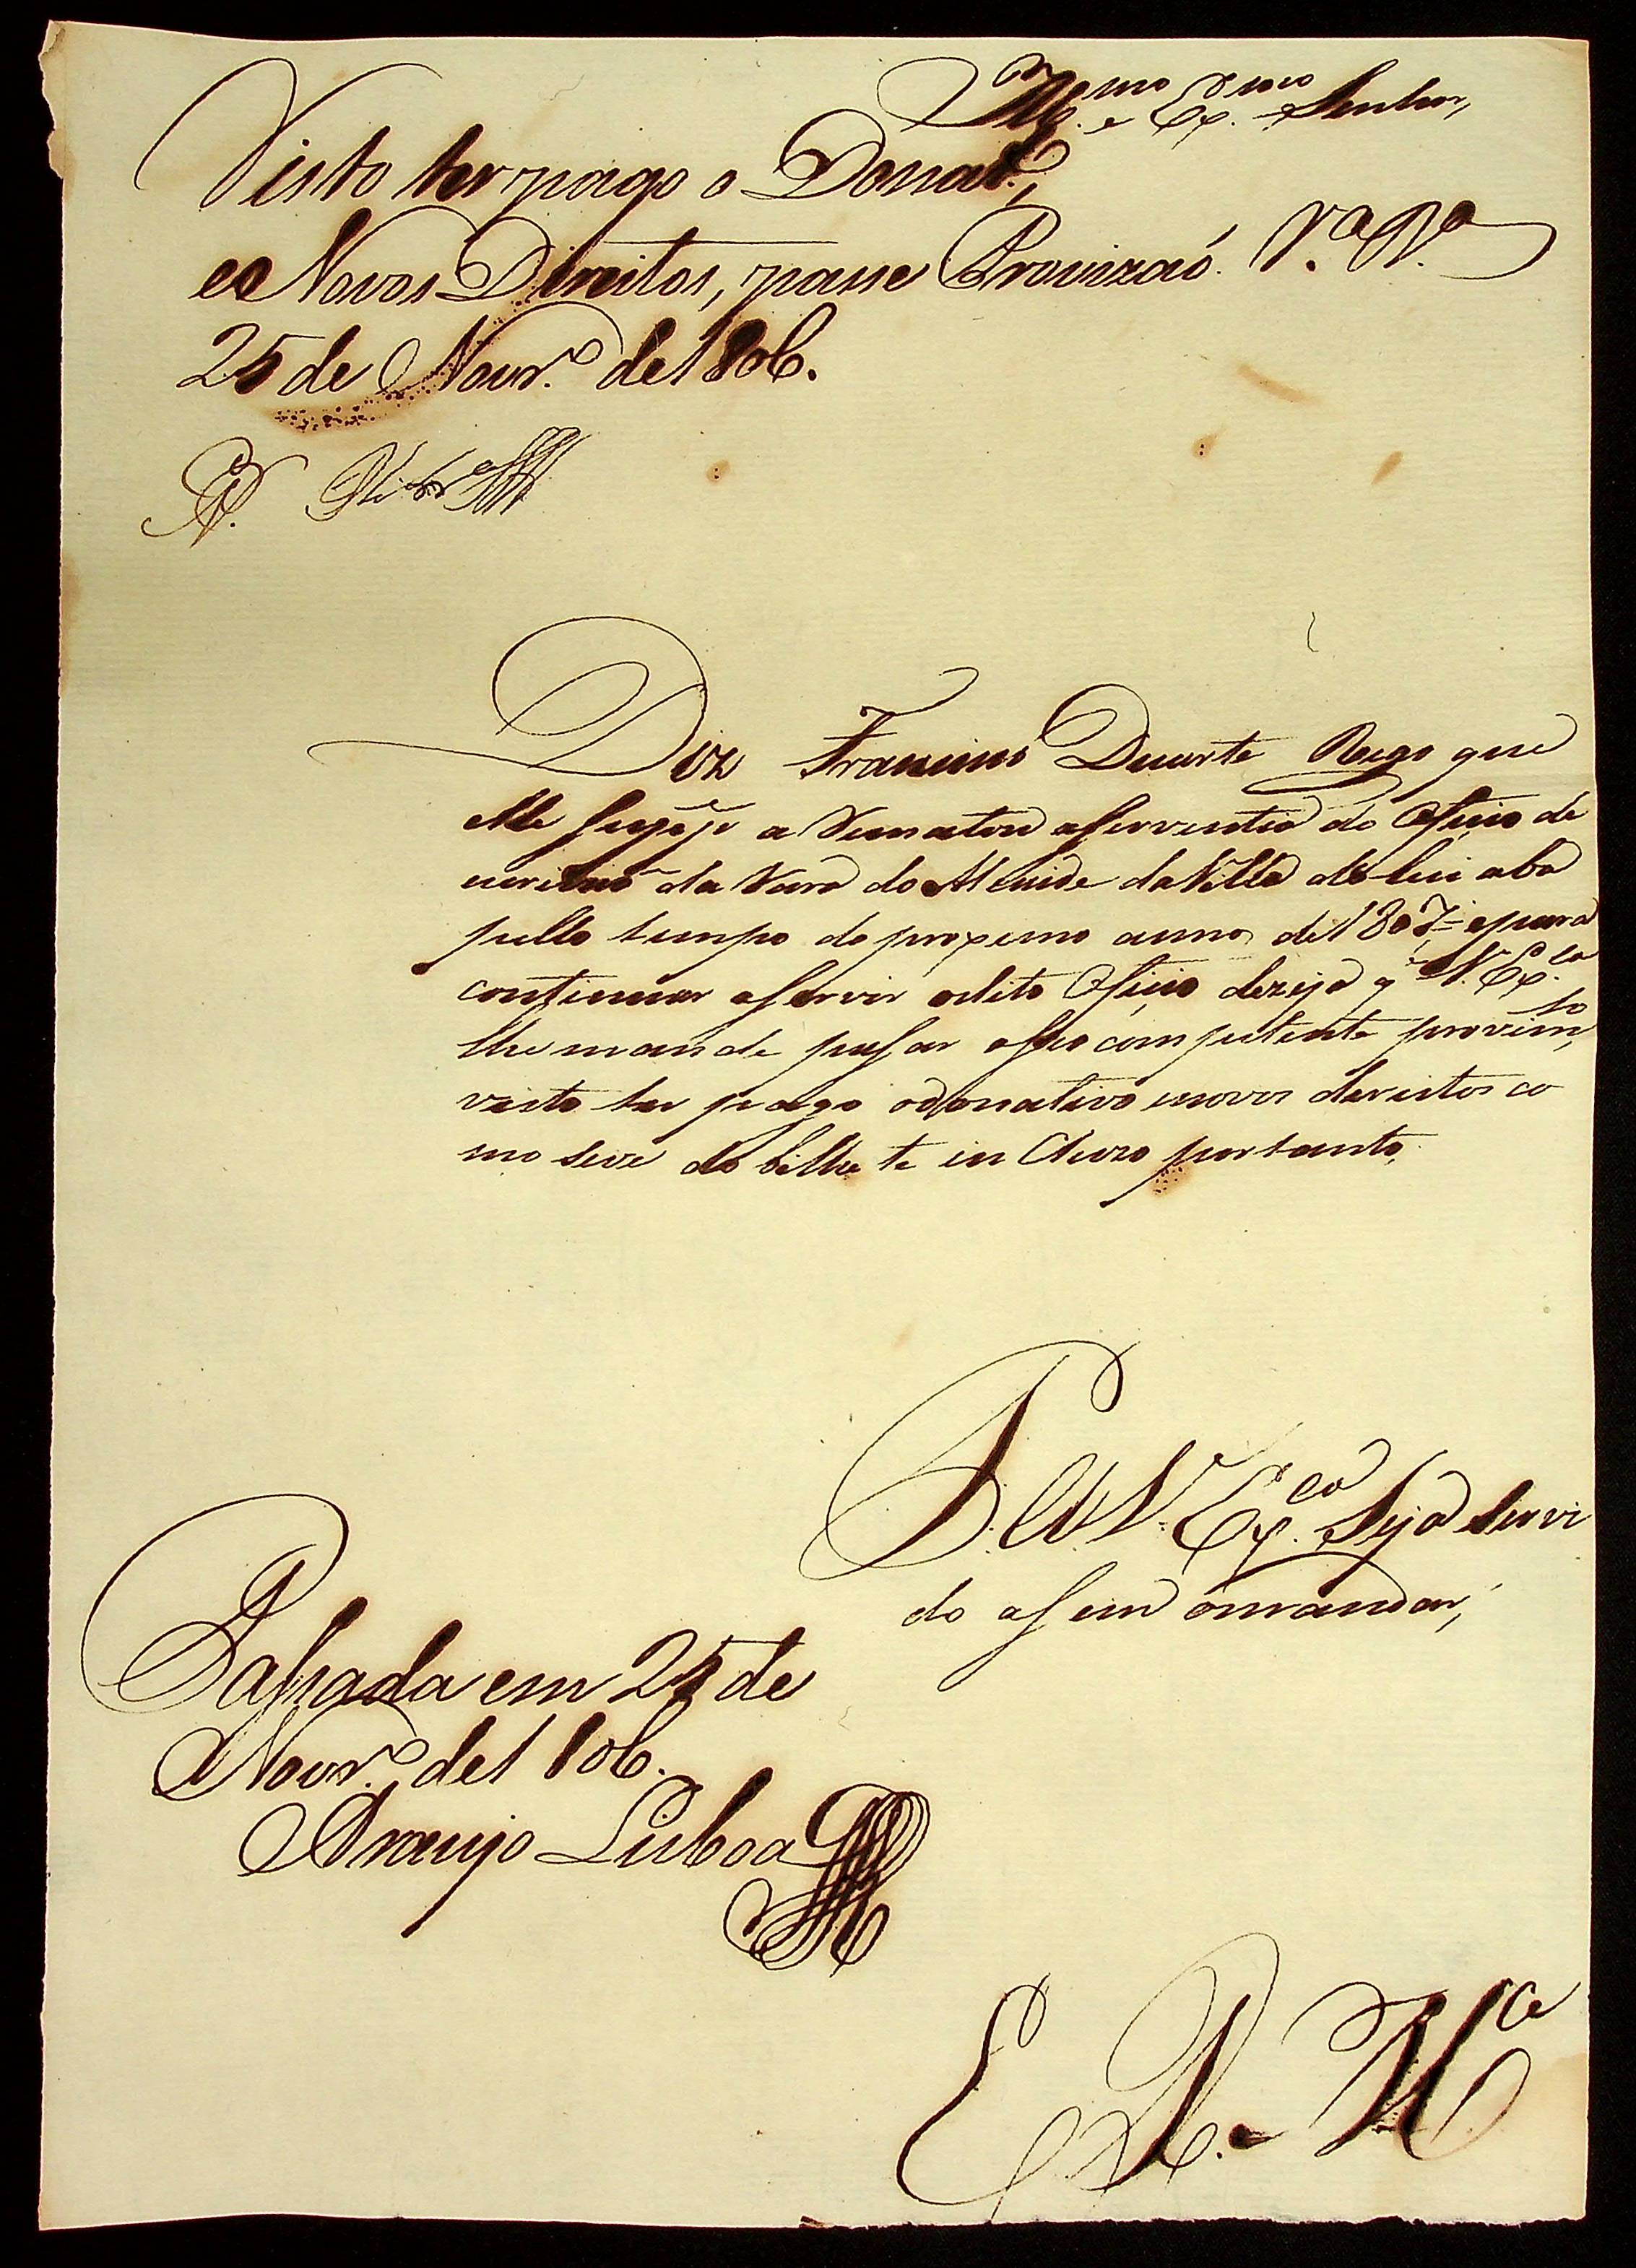 Ill.mo e Ex.mo Senhor,
Visto ter pago o Donat.,
es Novos Direitos, passe Provizaó. V.a R.a
25 de Novr.o de 1806.
Diz Francisco Duarte Rego que
elle a Rematou aserventia do Oficio de
escrivaõ da Vara do Alcaide da Villa do Cuiaba
pello tempo do proximo anno de 1807 epara
continuar aServir odito Oficio dezeja q V. Ex.ca
lhe mande pasar oseo competente provim.to,
visto ter pago odonativo enovos dereitos co
mo seve do bilhete incluzo portanto,
P. a V. Ex.ca Seja Servi
do asim omandar,
Passada em 25 de
Novr.o de 1806.
Araujo Lisboa
E R. M.ce